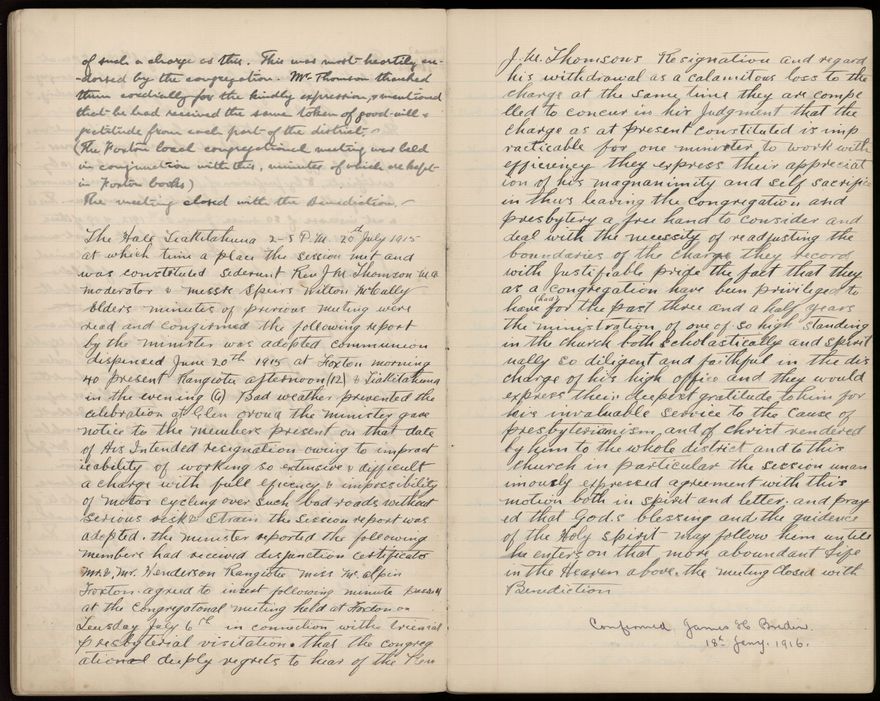 of such a charge as this. This was most heartily en-
-dorsed by the congregation. Mr Thomson thanked
them cordially for the kindly expression, & mentioned
that he had received the same token of good-will &
gratitude from each part of the district.-
(The Foxton local congregational meeting was held
in conjunction with this, minutes of which are kept
in Foxton books)
The meeting closed with the Benediction.-
The Hall Tiakitahuna 2-5 P.M. 20th July 1915
at which time & place the session met and
was constituted sederunt Rev J M Thomson M.A
moderator & messrs Speirs Wilton McCally
Elders minutes of previous meeting were
read and confirmed the following report
by the minister was adopted communion
dispensed June 20th 1915 at Foxton morning
40 present Rangiotu afternoon (12) & Tiakitahuna
in the evening (6) Bad weather prevented the
celebration at Glen Oroua the minister gave
notice to the members present on that date
of His Intended resignation owing to impract
icability of working so extensive & difficult
a charge with full eficency & impossibility
of motor cycling over such bad roads without
serious risk & strain the session report was
adopted. the minister reported the following
members had received disjunction certificats
Mr & Mr. Henderson Rangiotu Miss Mc.alpin
Foxton agreed to insert following minute passed
at the Congregatonal meeting held at Foxton on
Teusday July 6th in connection with trienial
presbyterial visitation. that the congreg
ational deeply regrets to hear of the Rev
J. M. Thomsons Resignation and regard
his withdrawal as a calamitous loss to the
charge at the same time they are compe
lled to concur in his Judgment that the
charge as at present constituted is imp
racticable for one minister to work with
efficiency they express their appreciat
ion of his magnanimity and self sacrifice
in thus leaving the congregation and
presbytery a free hand to consider and
deal with the necessity of readjusting the
boundaries of the charge they record
with Justifiable pride the fact that they
as a congregation have been privileged to
have (had) for the past three and a half years
the ministration of one of so high standing
in the church both scholastically and spirit
ually so diligent and faithful in the dis
charge of his high office and they would
express their deepest gratitude to him for
his invaluable service to the Cause of
presbyterianism, and of Christ rendered
by him to the whole district and to this
church in particular the session unan
imously expressed agreement with this
motion both in spirit and letter. and pray
ed that God.s blessing and the guidence
of the Holy Spirit may follow him untill
he enters on that more aboundant Life
in the Heaven above. the meeting Closed with
Benediction
Confirmed, James H Breden
18th Jany. 1916.